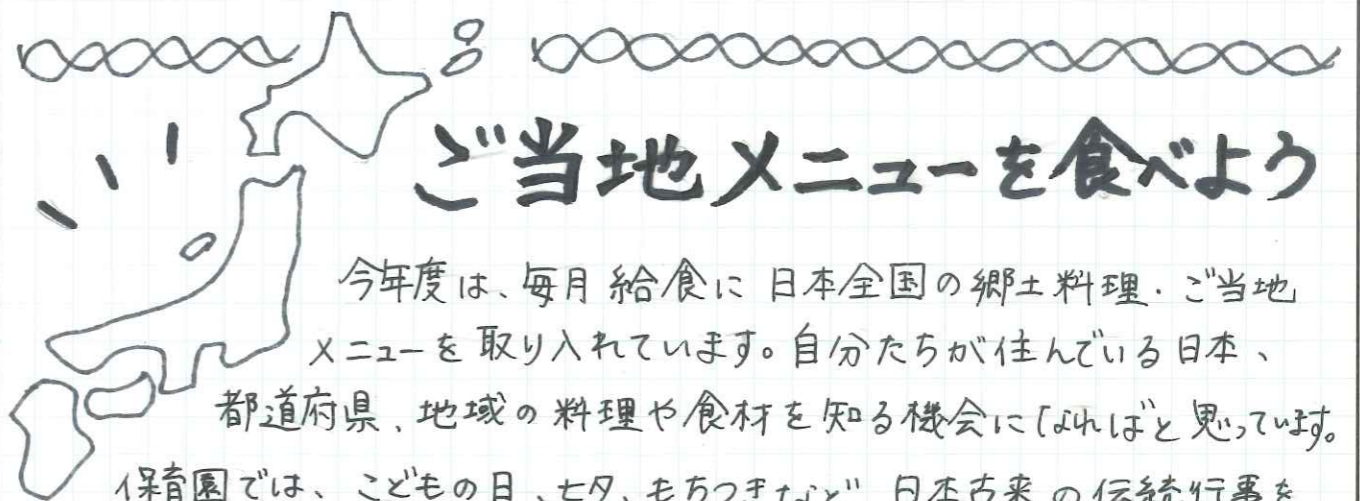 ご当地メニューを食べよう
今年度は、毎月給食に日本全国の郷土料理・ご当地
メニューを取り入れています。自分たちが住んでいる日本、
都道府県、地域の料理や食材を知る機会になればと思っています。
保育園では、こどもの日、七夕、もちつきなど日本古来の伝統行事を